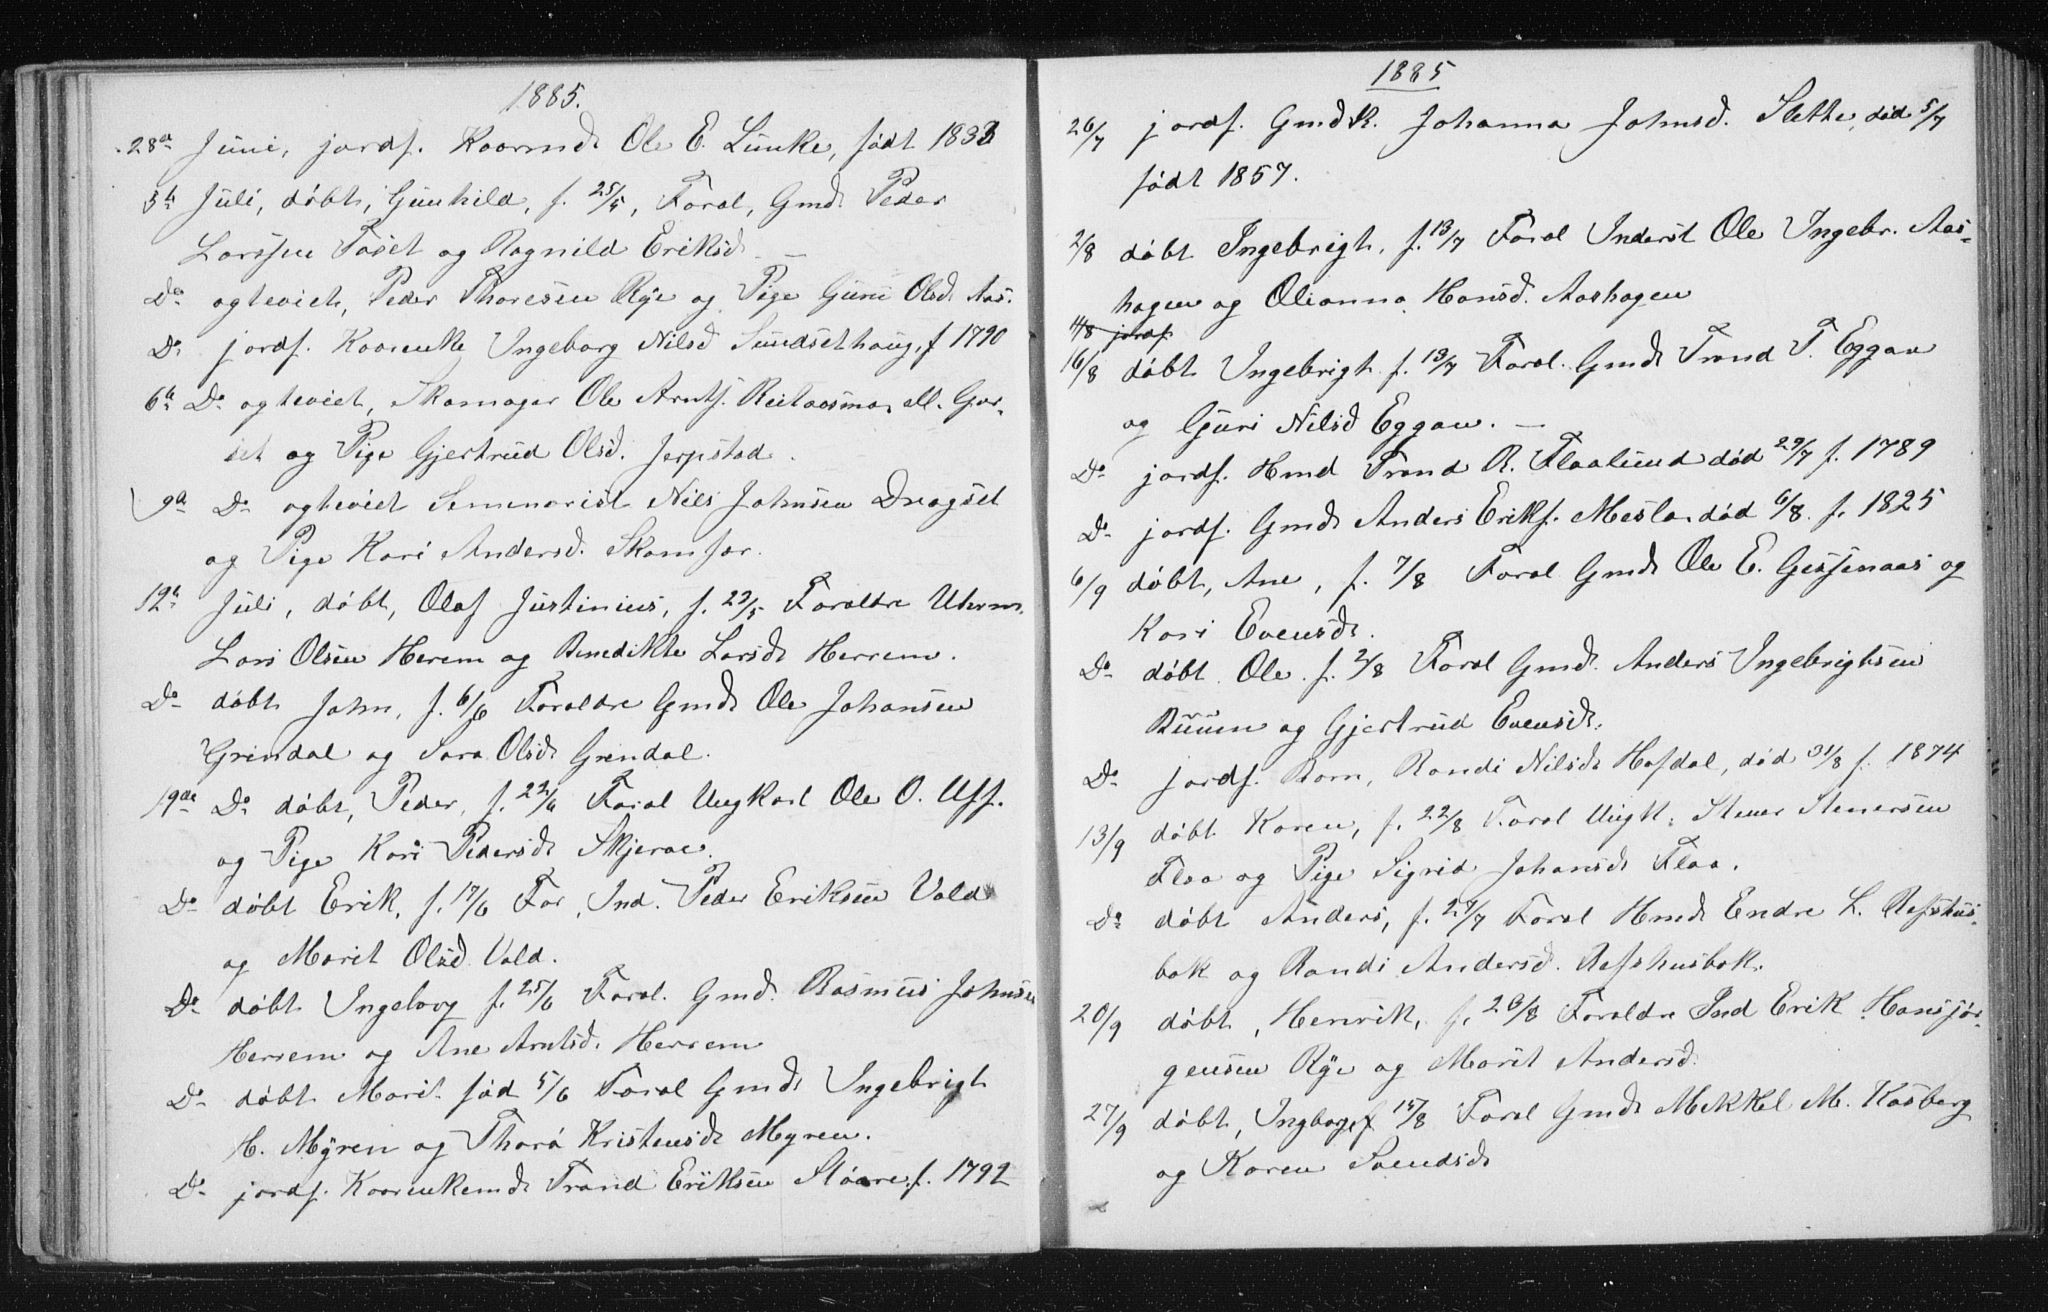 1885.
28de Juni, jordf. Kaarmd. Ole E. Lunke, født 1833
5te Juli, døbt, Gunhild, f. 25/5, Foral, Gmd. Peder
Larssen Foset og Ragnild Eriksd. —
Do. ogteviet, Peder Thoresen Rye og Pige Guru Olsd. Aas.
Do. jordf. Kaarenke Ingeborg Nilsd. Sundsethaug, f 1790
6te Do. ogteviet, Skomager Ole Arnts. Reitaasmo, ell. Gor-
set og Pige Gjertrud Olsd. Jerpstad.
9de Do. ogteviet Seminarist Nils Johnsen Dragset
og Pige Kari Andersd. Skamfar.
12te Juli, døbt, Olaf Justinius, f. 23/5 Foraldre Uhrm.
Lars Olsen Herem og Benedikte Larsd. Herrem.
Do. døbt John, f. 6/6 Foraldre Gmd. Ole Johansen
Grindal og Sara Olsd. Grendal.
19de Do. døbt, Peder, f. 22/6 Foral Ungkarl Ole O. Uff.
og Pige Kari Pedersd. Skjerae.
Do. døbt Erik, f. 17/6 For, Ind. Peder Eriksen Vold
og Marit Olsd. Vold.
Do. døbt Ingeborg f. 25/6 Foral. Gmd. Rasmus Johnsen
Herrem og Ane Arntsd. Herrem
Do. døbt Marit fød 5/6 Foral Gmd. Ingebrigt
H. Myren og Thora Kristensd. Myren.
Do. jordf. Kaarenkemd. Trond Eriksen Støare, f. 1792
1885
26/7 jordf. Gmdk. Johanna Johnsd. Slette, død 5/7
født 1857.
2/8 døbt Ingebrigt, f. 13/7 Foral Inderst Ole Ingebr. Aas-
hagen og Olianna Hansd. Aashagen
11/8 jordf.
16/8 døbt Ingebrigt f. 13/7 Foral. Gmd. Trond T. Eggan
og Guri Nilsd Eggan. —
Do. jordf. Hmd Trond R. Flaalund død 29/7 f. 1789
Do. jordf. Gmd. Anders Eriks. Meslo død 6/8. f. 1825
6/9 døbt, Ane, f. 7/8 Foral Gmd. Ole E. Gisjenaas og
Kari Evensd.
Do. døbt. Ole f. 2/8 Foral Gmd. Anders Ingebrigtsen
Buum og Gjertrud Evensd.
Do. jordf. Barn, Randi Nilsd. Hofdal, død 31/8 f. 1874
13/9 døbt Karen, f. 22/8 Foral Ungk. Stener Stenersen
Flaa og Pige Sigrid Johansd. Flaa.
Do. døbt Anders, f. 27/7 Foral Hmd. Endre L. Refshus-
bak og Randi Andersd. Refshusbak.
20/9 døbt, Henrik, f. 23/8 Foraldre Ind Erik Hansjør-
gensen Rye og Marit Andersd.
27/9 døbt, Ingborg f 15/8 Foral Gmd. Mekkel M. Kasberg
og Karen Svendsd.